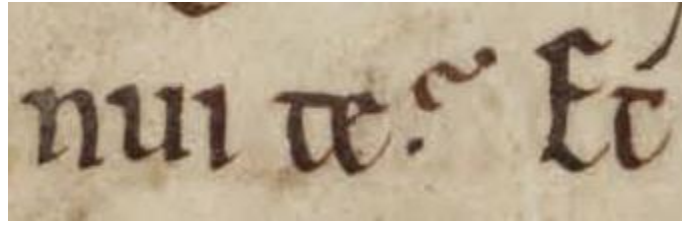 nui te? Et